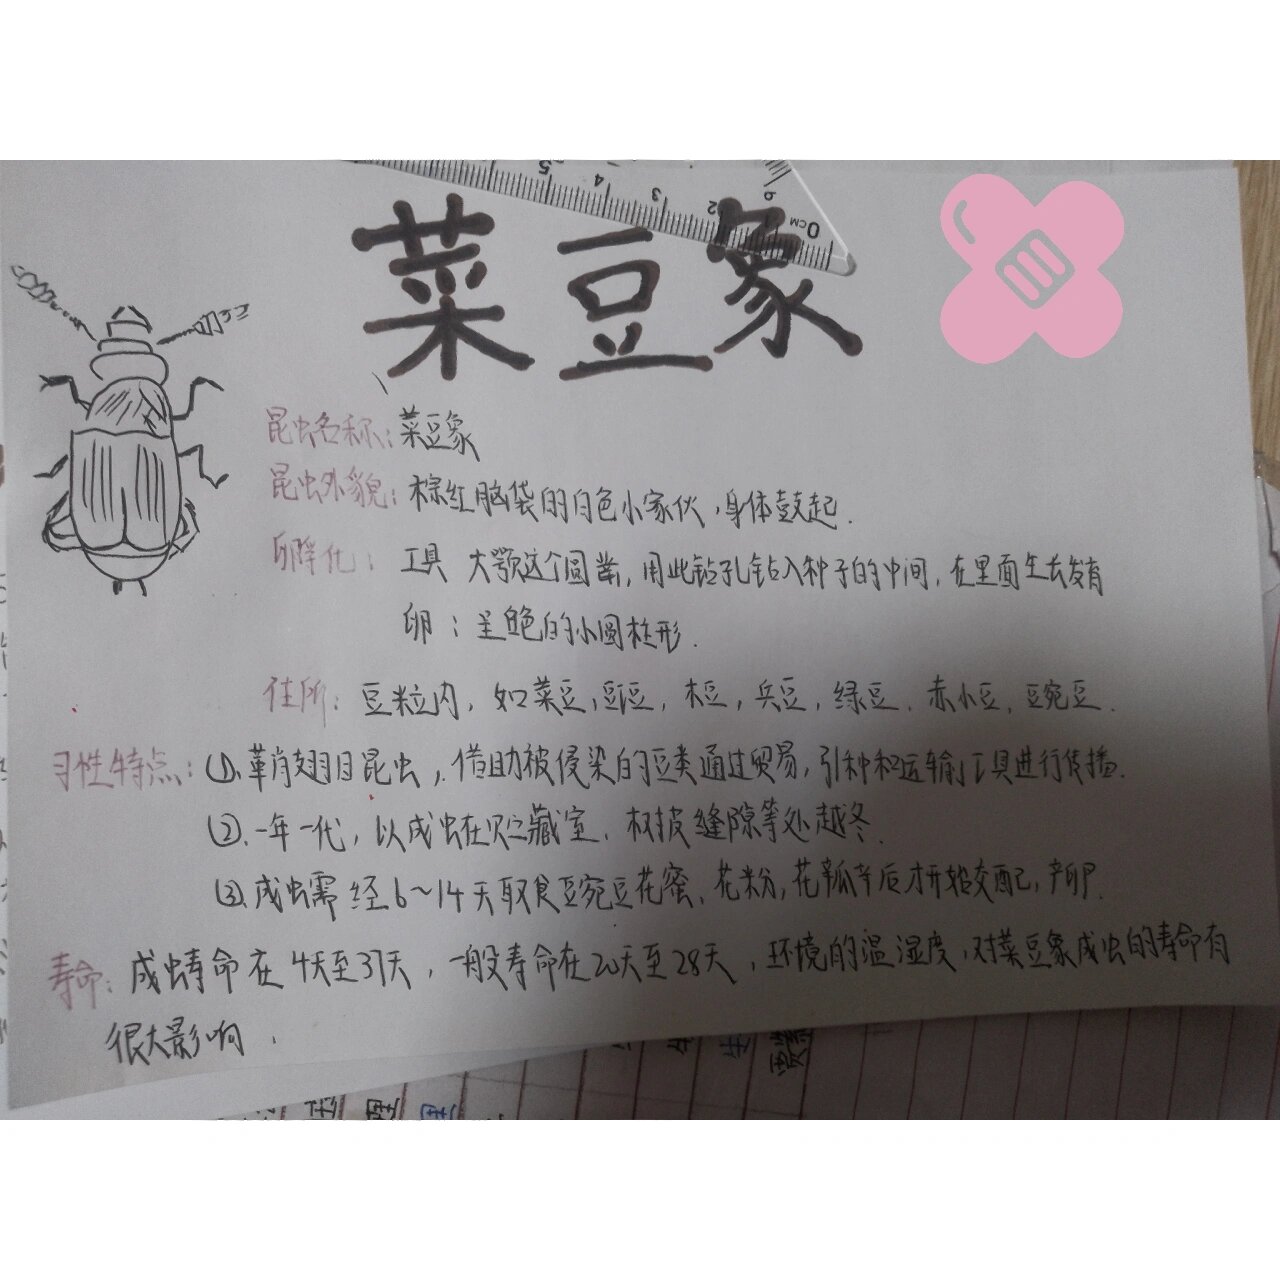 菜豆象
昆虫名称：菜豆象
昆虫外貌：棕红脑袋的白色小家伙，身体鼓起.
孵化： 工具 大颚这个圆凿，用此钻孔钻入种子的中间，在里面生长发育
卵：呈白色的小圆柱形.
住所：豆粒内，如菜豆，豇豆，木豆，兵豆，绿豆、赤小豆、豆豌豆.
习性特点：①.革肖翅目昆虫，借助被侵染的豆类通过贸易，引种和运输工具进行传播.
②.一年一代，以成虫在贮藏室、树皮缝隙等处越冬.
③.成虫需经6～14天取食豆豌豆花蜜、花粉，花瓣等后才开始交配，产卵.
寿命：成虫寿命在4天至37天，一般寿命在20天至28天，环境的温湿度，对菜豆象成虫的寿命有
很大影响.
5 4 3 2 0 CM